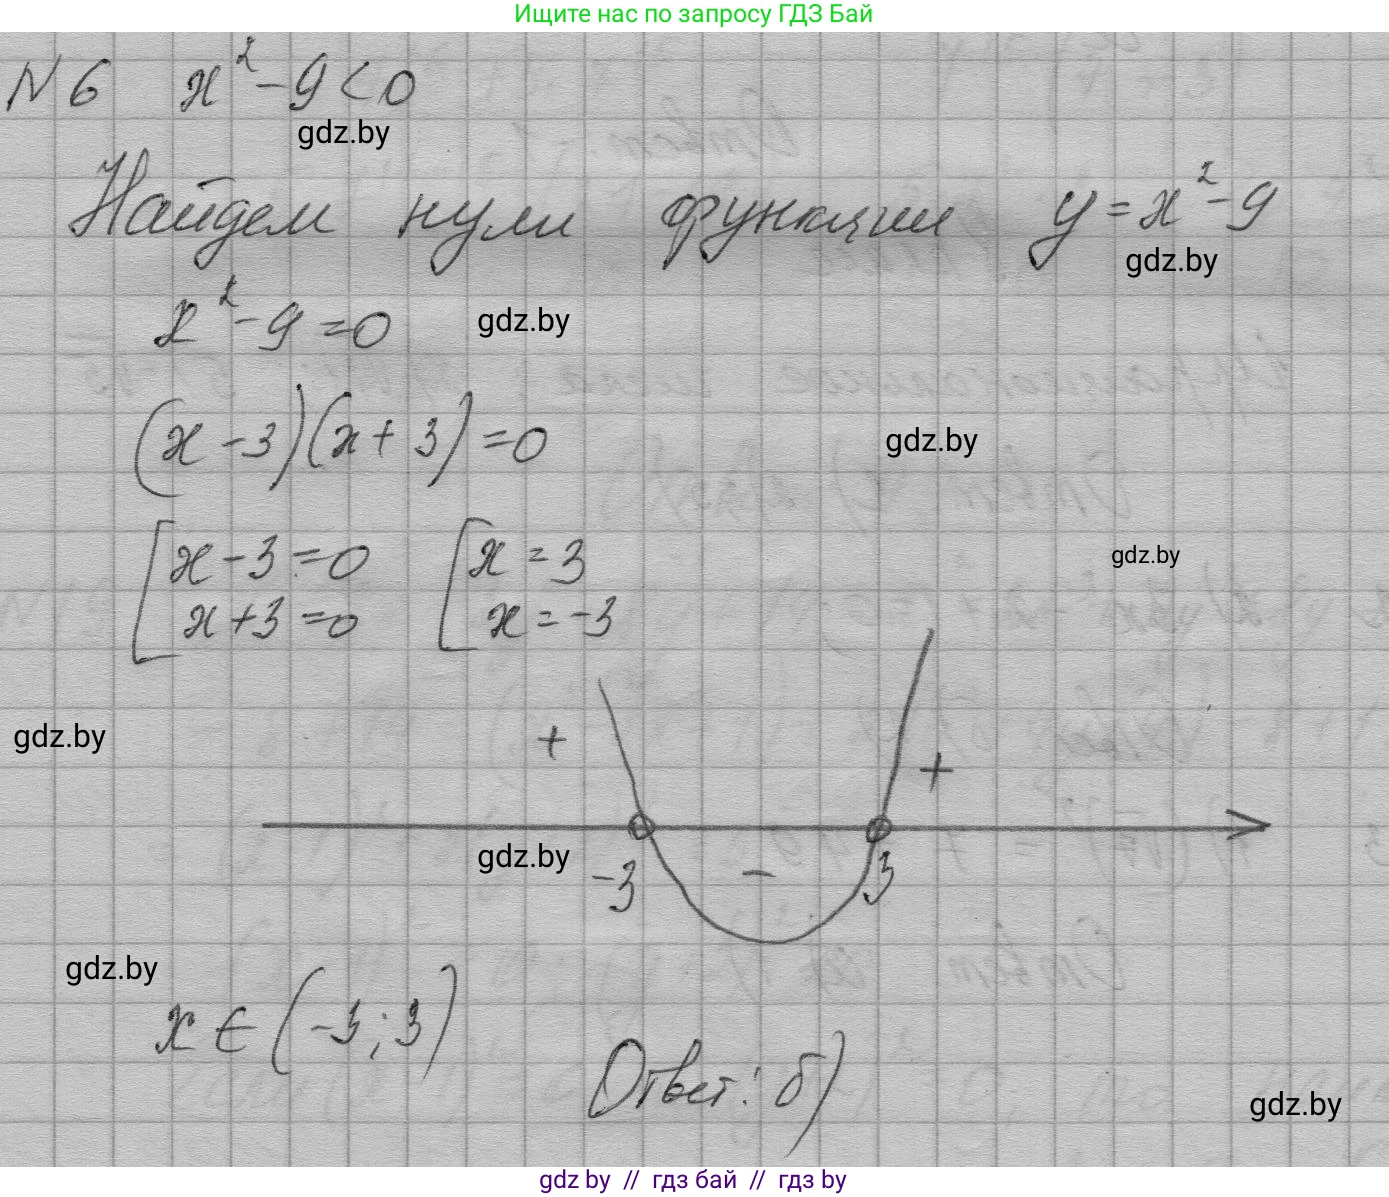 Ищите нас по запросу ГДЗ Бай
N 6 x² - 9 < 0
gdz.by
Найдем нули функции y = x² - 9
gdz.by
x² - 9 = 0
gdz.by
(x - 3)(x + 3) = 0
gdz.by
[ x - 3 = 0 [ x = 3
gdz.by
x + 3 = 0 x = -3
gdz.by
+ +
gdz.by
-3 - 3
gdz.by
x ∈ (-3; 3)
Ответ: б)
gdz.by
gdz.by // гдз бай // гдз by